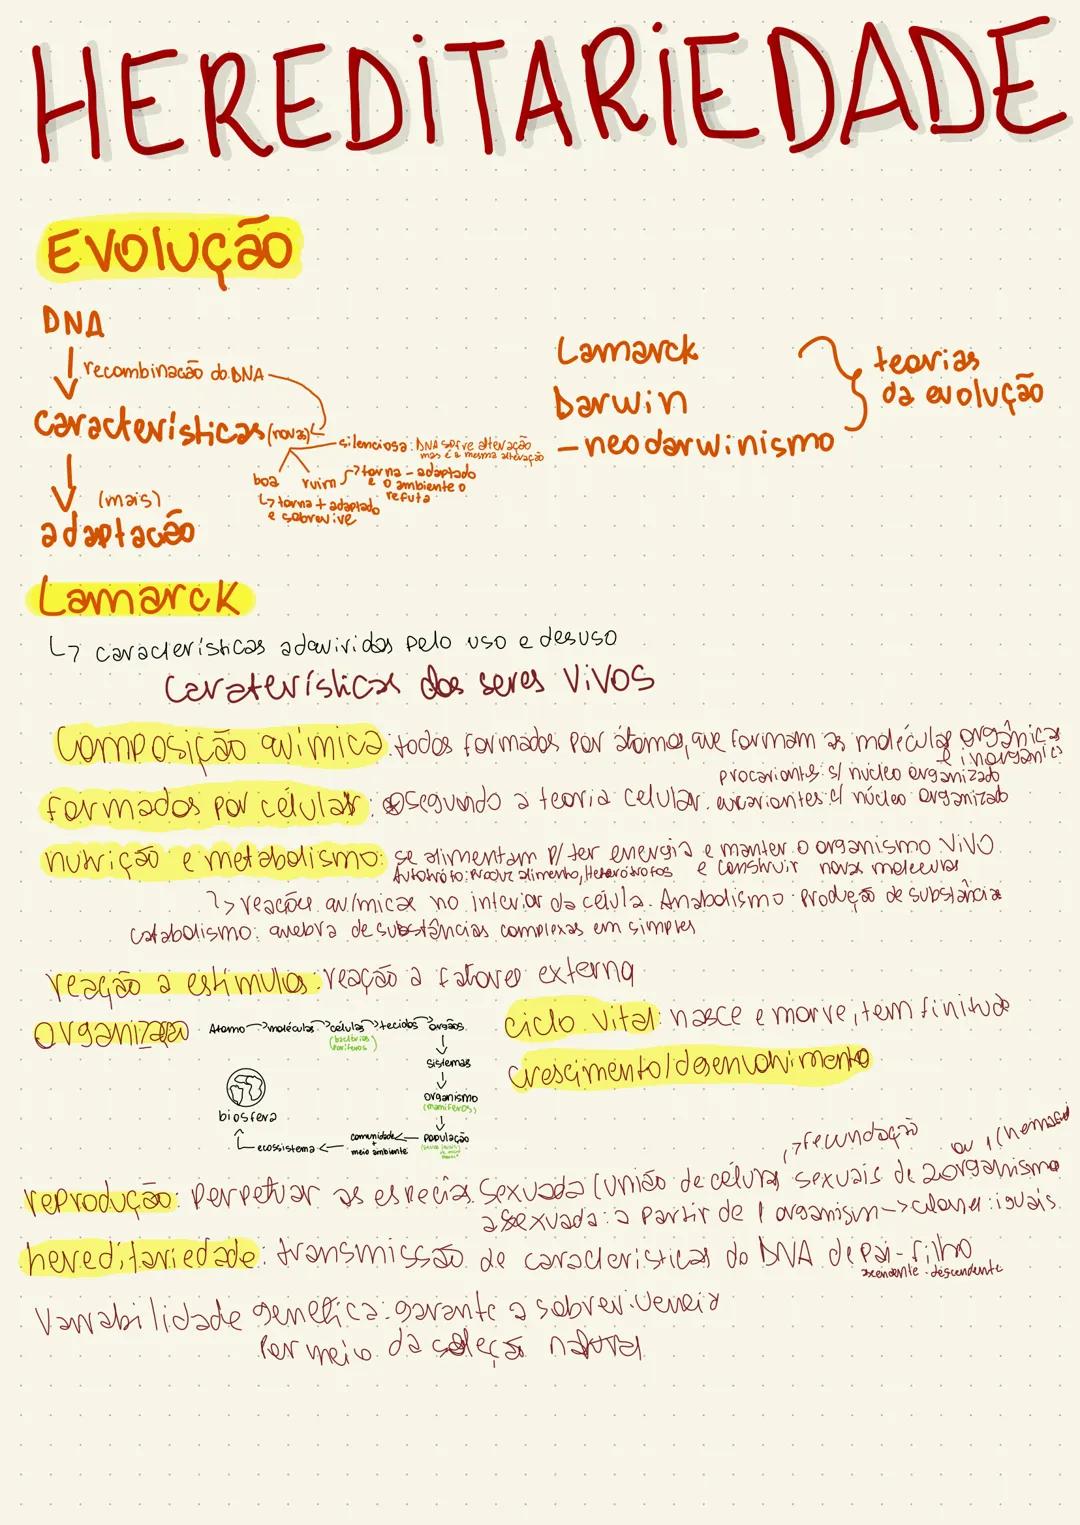 HEREDITARIEDADE
EVOLUÇÃO
DNA
recombinação do DNA
características (novas)
silenciosa: DNA sofre alteração
mas é a mesma alteração
boa
ruim
torna - adaptado
e o ambiente o
refuta
torna + adaptado
e sobrevive
(mais)
adaptação
Lamarck
Darwin
- neodarwinismo
teorias
da evolução
Lamarck
características adquiridas pelo uso e desuso
Caraterísticas dos seres vivos
Composição química: todos formados por átomos, que formam as moléculas orgânicas
e inorgânic
procariontes: s/ núcleo organizado
formados por células: segundo a teoria celular. eucariontes: c/ núcleo organizado
nutrição e metabolismo: se alimentam p/ ter energia e manter o organismo vivo.
Autótrofo: Produz alimento, Heterótrofos e construir novas moléculas
reações químicas no interior da célula. Anabolismo: produção de substância
catabolismo: quebra de substâncias complexas em simples
reação a estímulos: reação a fatores externa
organização
Atomo → moléculas → células → tecidos → órgãos
(bactérias
poríferos)
sistemas
organismo
(mamíferos)
população
comunidade
+
meio ambiente
ecossistema
biosfera
ciclo vital: nasce e morre, tem finitude
crescimento/desenvolvimento
→ fecundação
ou 1
reprodução: Perpetuar as espécies. Sexuada (união de células sexuais de 2 organismo
assexuada: a partir de 1 organism → clones: iguais.
hereditariedade: transmissão de características do DNA de Pai-filho
ascendente - descendente
Variabilidade genética: garante a sobrevivencia
Por meio da seleção natural